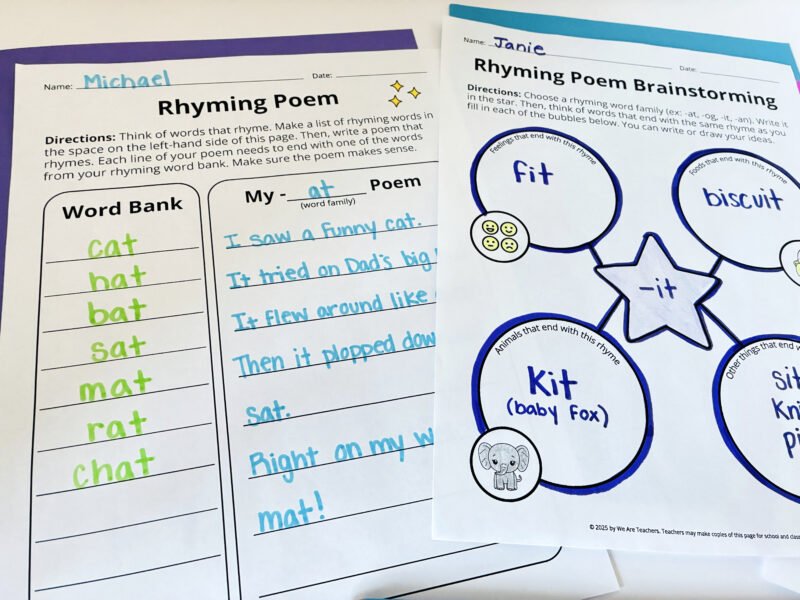 Name: Michael Date:
Rhyming Poem
Directions: Think of words that rhyme. Make a list of rhyming words in
the space on the left-hand side of this page. Then, write a poem that
rhymes. Each line of your poem needs to end with one of the words
from your rhyming word bank. Make sure the poem makes sense.
Word Bank
cat
hat
bat
sat
mat
rat
chat
My - at Poem
(word family)
I saw a funny cat.
It tried on Dad's big
It flew around like
Then it plopped dow
sat.
Right on my w
mat!
Name: Janie Date:
Rhyming Poem Brainstorming
Directions: Choose a rhyming word family (ex: -at, -og, -it, -an). Write it
in the star. Then, think of words that end with the same rhyme as you
fill in each of the bubbles below. You can write or draw your ideas.
Feelings that end with this rhyme
fit
Foods that end with this rhyme
biscuit
-it
Animals that end with this rhyme
Kit
(baby fox)
Other things that end w
sit
Kni
pi
© 2025 by We Are Teachers. Teachers may make copies of this page for school and class